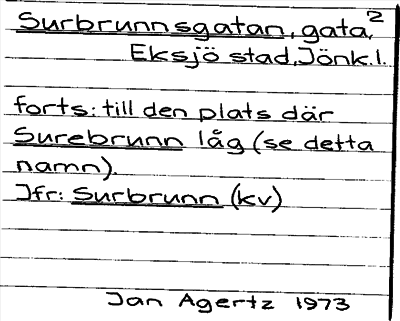 Surbrunnsgatan, gata, 2
Eksjö stad, Jönk. l.
forts: till den plats där
Surebrunn låg (se detta
namn).
Jfr: Surbrunn (kv)
Jan Agertz 1973